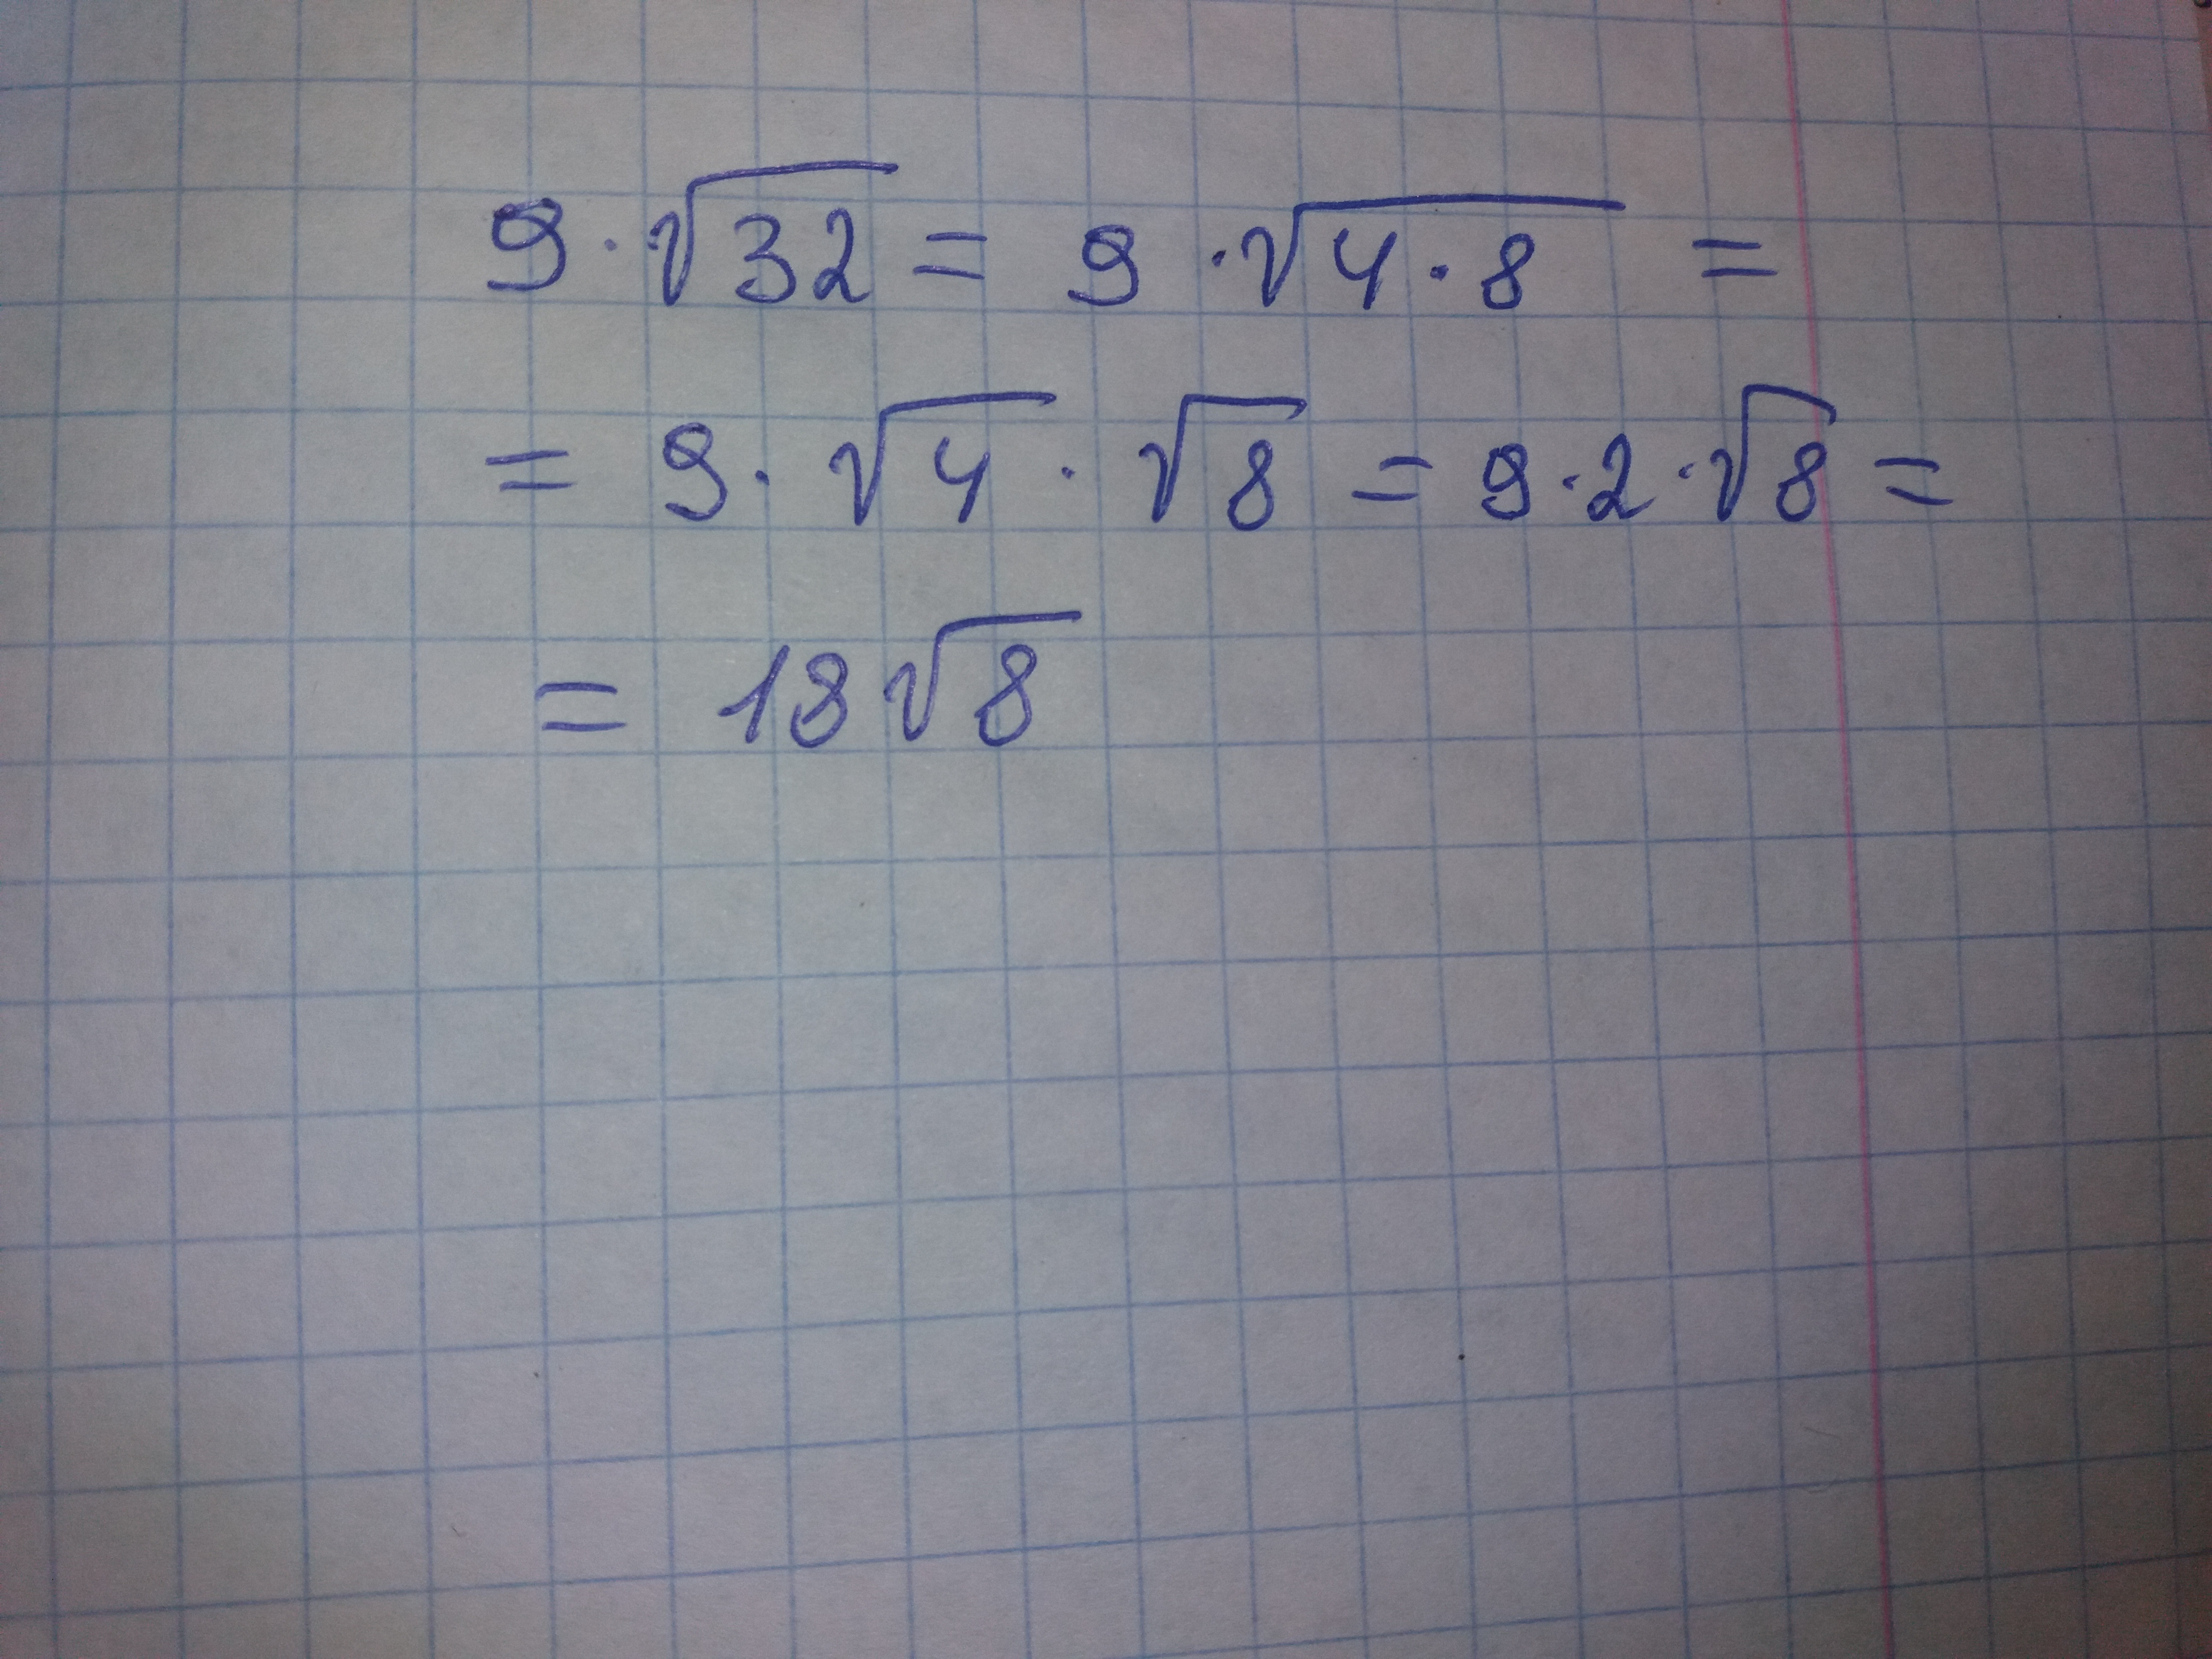 9 · √32 = 9 · √4 · 8 =
= 9 · √4 · √8 = 9 · 2 · √8 =
= 18√8